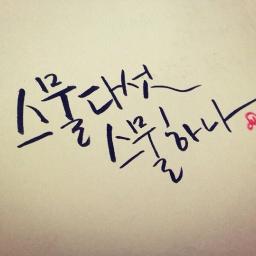 스물다섯
스물하나